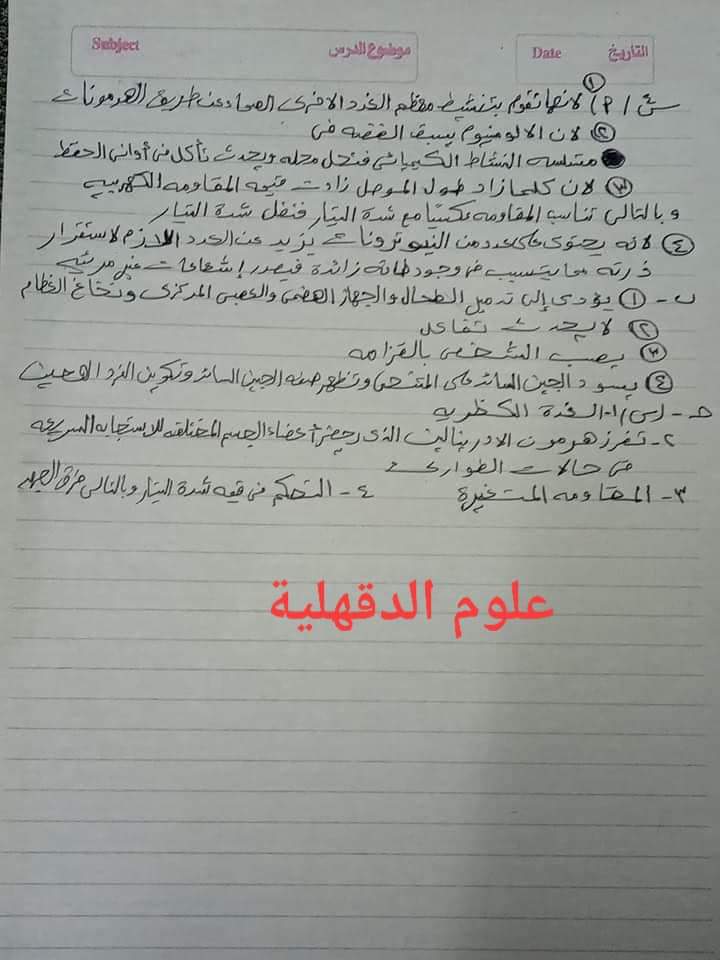 التاريخ Date
موضوع الدرس Subject
س٤/ (أ) ① لانها تقوم بتنشيط معظم الغدد الاخرى الصماء عن طريق الهرمونات
② لان الالومنيوم يسبق الفضه فى
متسلسه النشاط الكيميائى فتحل محله ويحدث تأكل فى أوانى الحفظ
③ لان كلما زاد طول الموصل زادت قيمه المقاومه الكهربيه
وبالتالى تناسب المقاومه عكسيًا مع شدة التيار فتقل شدة التيار
④ لانه يحتوى على عدد من النيوترونات يزيد عن العدد الازم لاستقرار
ذرته مما يتسبب فى وجود طاقه زائدة فيصدر إشعاعات غير مرئيه
ب - ① يؤدى إلى تدمير الطحال والجهاز الهضمى والعصبى المركزى ونخاع العظام
② لا يحدث تفاعل
③ يصب الشخص بالقزامه
④ يسود الجين السائد على المتنحى وتظهر صفه الجين السائد وتكوين الفرد الهجين
ج - (س) ١- الغدة الكظريه
٢- تفرز هرمون الادرينالين الذى يحفز أعضاء الجسم المختلفه للاستجابه السريعه
فى حالات الطوارئ
٣- المقاومه المتغيرة ٤- التحكم فى قيمه شدة التيار وبالتالى فرق الجهد
علوم الدقهلية